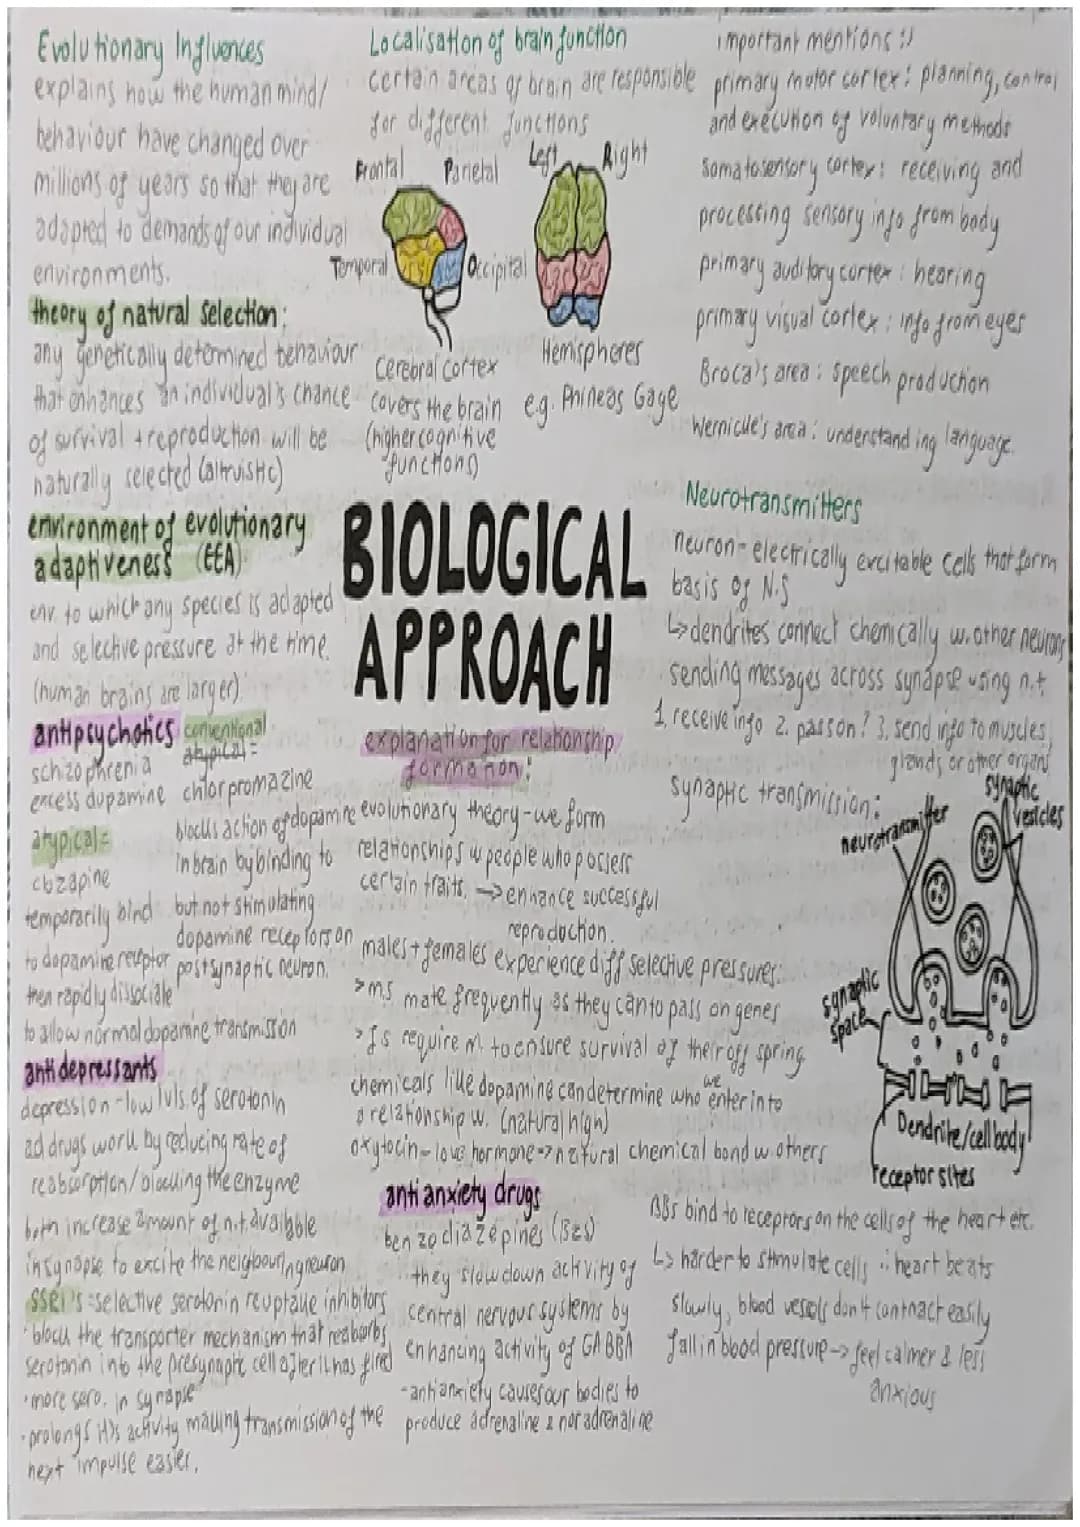 Evolutionary Influences
explains how the human mind/
behaviour have changed over
millions of years so that they are
adapted to demands of our individual
environments.
theory of natural selection:
any genetically determined behaviour
that enhances an individual's chance
of survival + reproduction will be
naturally selected (altruistic)
environment of evolutionary
adaptiveness (EEA)
env. to which any species is adapted
and selective pressure at the time.
(human brains are larger)
antipsychotics
schizophrenia
excess dopamine
atypical =
clozapine
temporarily bind
to dopamine receptor
then rapidly dissociate
to allow normal dopamine transmission
conventional
atypical =
chlorpromazine
blocks action of dopamine
in brain by binding to
but not stimulating
dopamine receptors on
postsynaptic neuron.
antidepressants
depression - low lvls of serotonin
ad drugs work by reducing rate of
reabsorption/blocking the enzyme
both increase amount of n.t available
in synapse to excite the neighbouring neuron
SSRI's = selective serotonin reuptake inhibitors
· block the transporter mechanism that reabsorbs
serotonin into the presynaptic cell after it has fired
· more sero. in synapse
· prolongs it)s activity making transmission of the
next impulse easier.
Localisation of brain function
certain areas of brain are responsible
for different functions
Frontal
Parietal
Temporal
Occipital
Left
Right
Cerebral cortex
covers the brain
(higher cognitive
functions)
Hemispheres
e.g. Phineas Gage
BIOLOGICAL
APPROACH
explanation for relationship
formation:
evolutionary theory - we form
relationships w people who possess
certain traits. → enhance successful
reproduction.
males + females experience diff selective pressures:
>ms mate frequently as they can to pass on genes
>fs require m. to ensure survival of their offspring
chemicals like dopamine can determine who we enter into
a relationship w. (natural high)
oxytocin - love hormone => natural chemical bond w others
antianxiety drugs
benzodiazepines (BZs)
they slow down activity of
central nervous systems by
enhancing activity of GABBA
- antianxiety causes our bodies to
produce adrenaline & noradrenaline
important mentions :)
primary motor cortex: planning, control
and execution of voluntary methods
somatosensory cortex: receiving and
processing sensory info from body
primary auditory cortex: hearing
primary visual cortex: info from eyes
Broca's area: speech production
Wernicke's area: understanding language.
Neurotransmitters
neuron - electrically excitable cells that form
basis of N.S
↳ dendrites connect chemically w. other neurons
sending messages across synapse using n.t
1. receive info 2. pass on? 3. send info to muscles,
glands or other organs
synaptic transmission:
neurotransmitter
synaptic
vesicles
synaptic
space
Dendrite/cell body
receptor sites
BBs bind to receptors on the cells of the heart etc.
↳ harder to stimulate cells ∴ heart beats
slowly, blood vessels don't contract easily
fall in blood pressure -> feel calmer & less
anxious